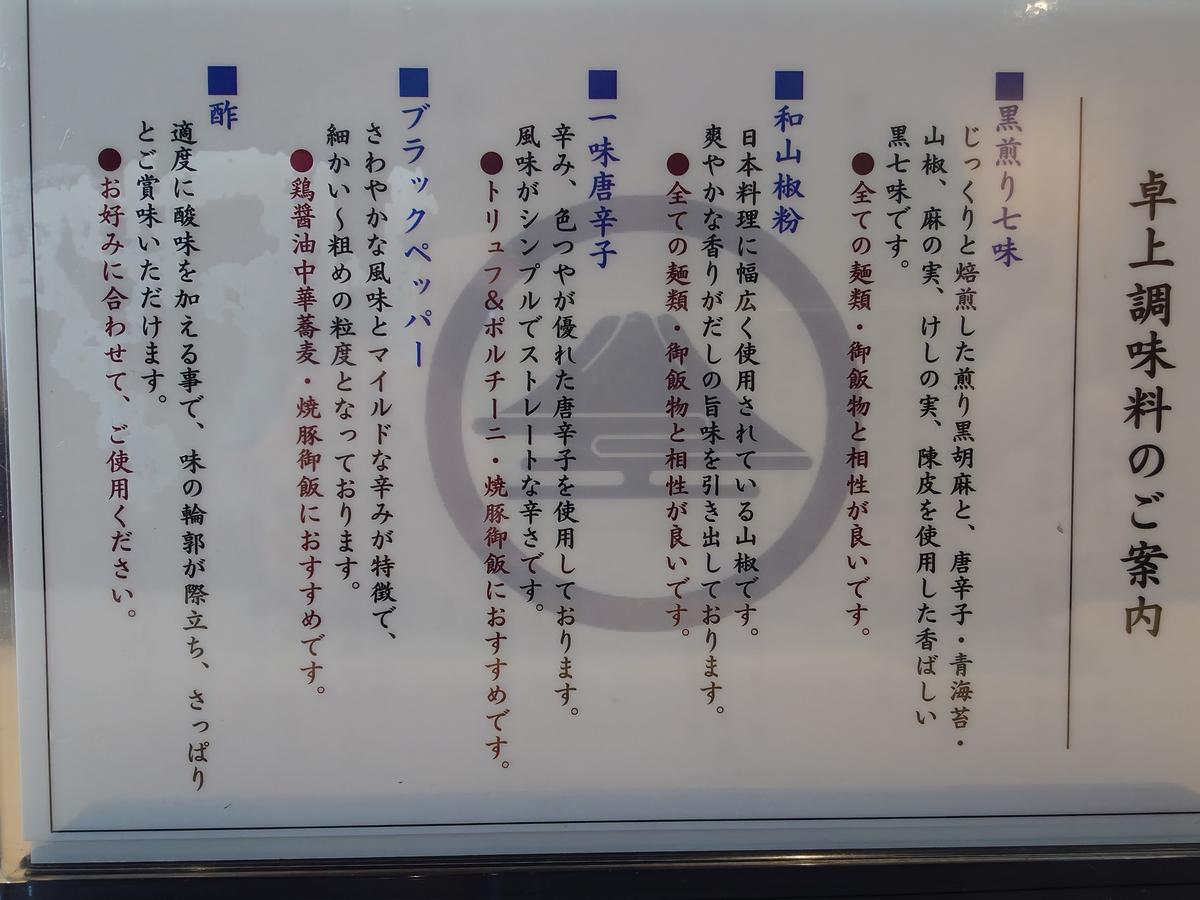 卓上調味料のご案内
■黒煎り七味
じっくりと焙煎した煎り黒胡麻と、唐辛子・青海苔・
山椒、麻の実、けしの実、陳皮を使用した香ばしい
黒七味です。
●全ての麺類・御飯物と相性が良いです。
■和山椒粉
日本料理に幅広く使用されている山椒です。
爽やかな香りがだしの旨味を引き出しております。
●全ての麺類・御飯物と相性が良いです。
■一味唐辛子
辛み、色つやが優れた唐辛子を使用しております。
風味がシンプルでストレートな辛さです。
●トリュフ&ポルチーニ・焼豚御飯におすすめです。
■ブラックペッパー
さわやかな風味とマイルドな辛みが特徴で、
細かい～粗めの粒度となっております。
●鶏醤油中華蕎麦・焼豚御飯におすすめです。
■酢
適度に酸味を加える事で、味の輪郭が際立ち、さっぱり
とご賞味いただけます。
●お好みに合わせて、ご使用ください。